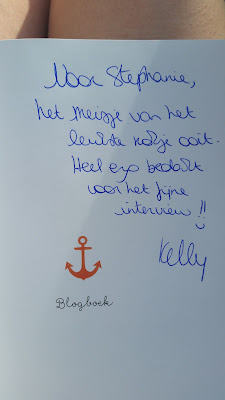 Voor Stephanie,
het meisje van het
leukste kotje ooit.
Heel erg bedankt
voor het fijne
interview !!
Kelly
Blogboek